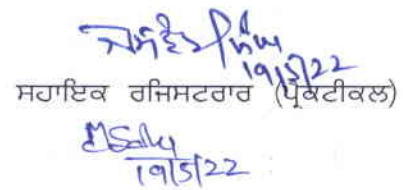 19/5/22
ਸਹਾਇਕ ਰਜਿਸਟਰਾਰ (ਪ੍ਰੈਕਟੀਕਲ)
19/5/22